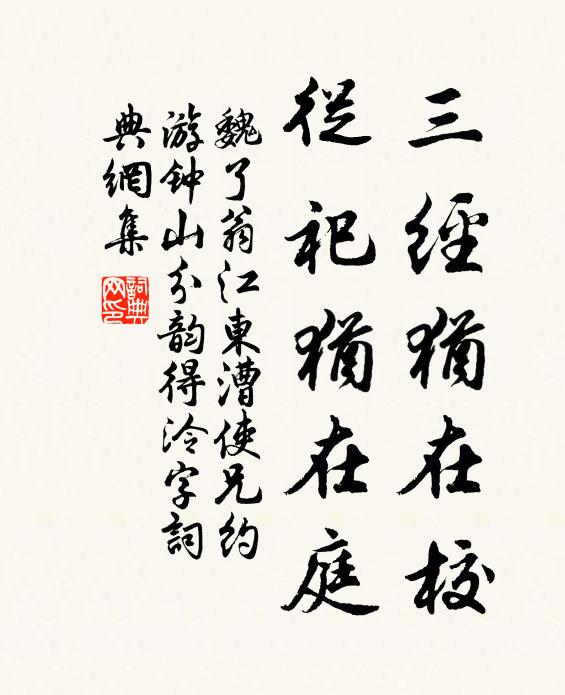 三經猶在校
從祀猶在庭
魏了翁江東漕使兄約
游钟山分韵得泠字詞
典網集
詞典網印